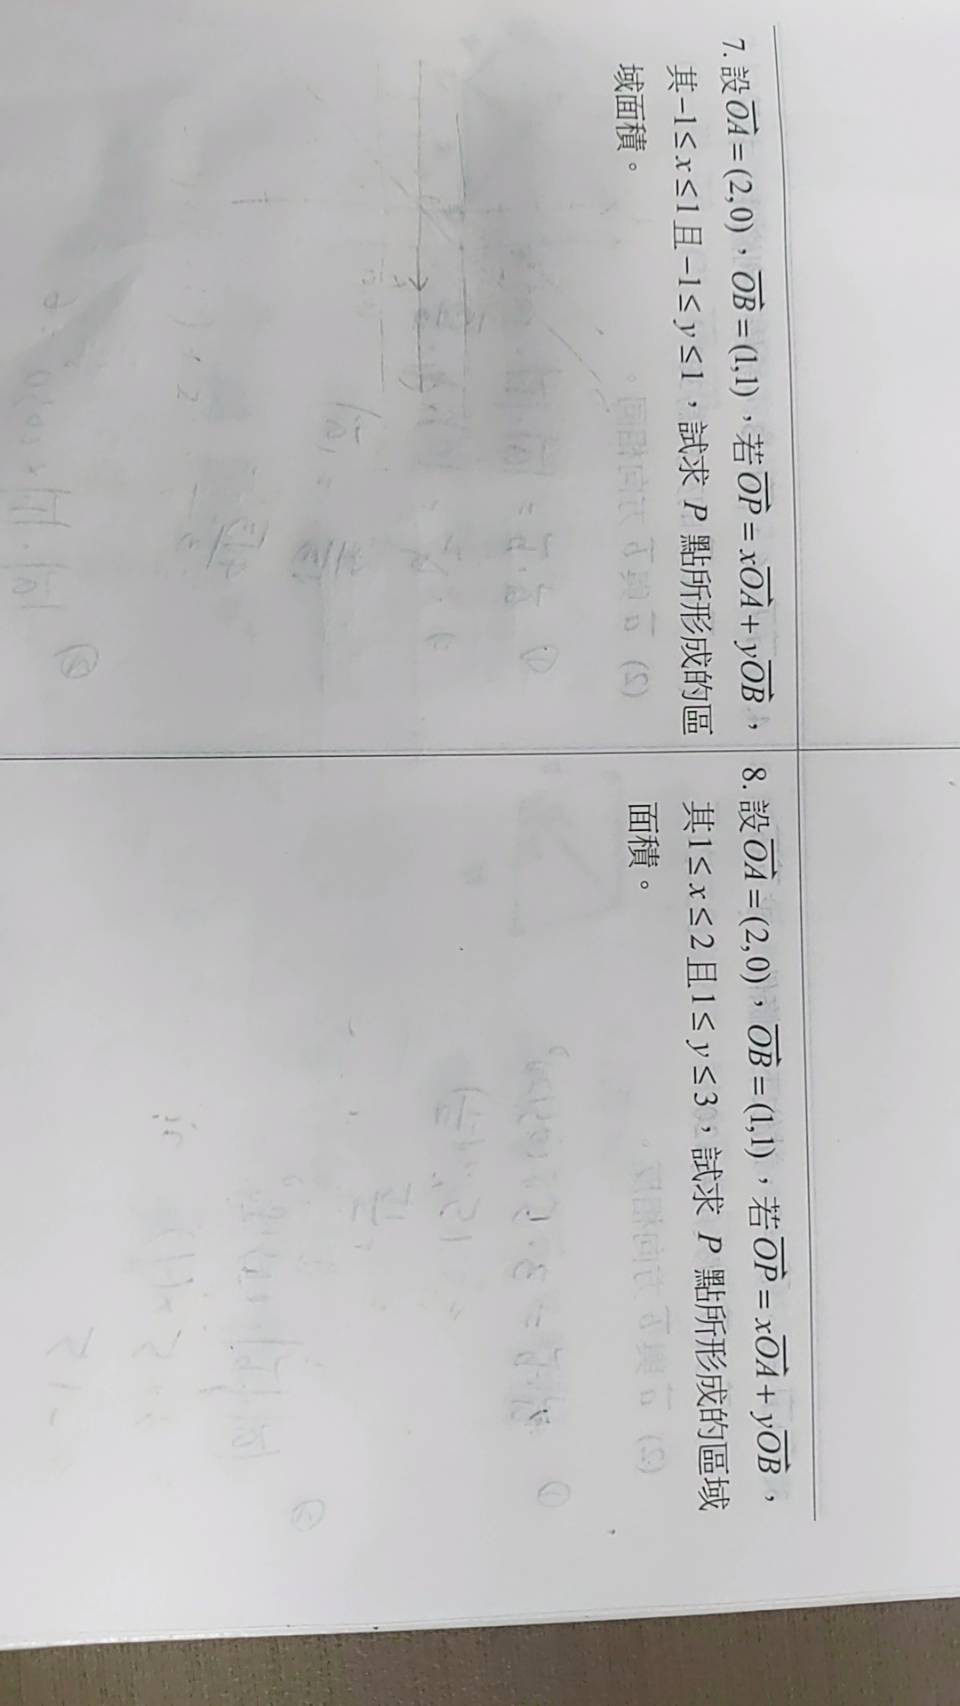 7. 設OA=(2,0)，OB=(1,1)，若OP=xOA+yOB，
其−1≤x≤1且−1≤y≤1，試求 P 點所形成的區
域面積。
8. 設OA=(2,0)，OB=(1,1)，若OP=xOA+yOB，
其1≤x≤2且1≤y≤3，試求 P 點所形成的區域
面積。